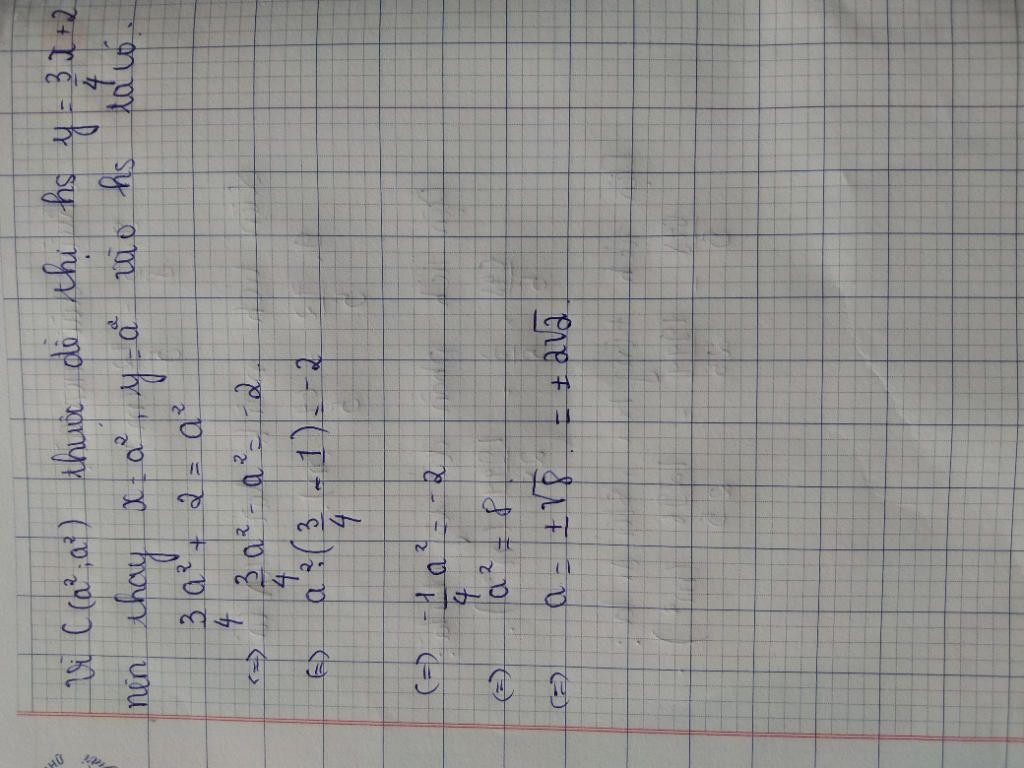 Vì C(a²; a²) thuộc đồ thị hs y = 3/4 x + 2
nên thay x = a², y = a² vào hs ta có:
3/4 a² + 2 = a²
<=> 3/4 a² - a² = -2
(=) a².(3/4 - 1) = -2
(=) -1/4 a² = -2
(=) a² = 8
(=) a = ±√8 = ±2√2